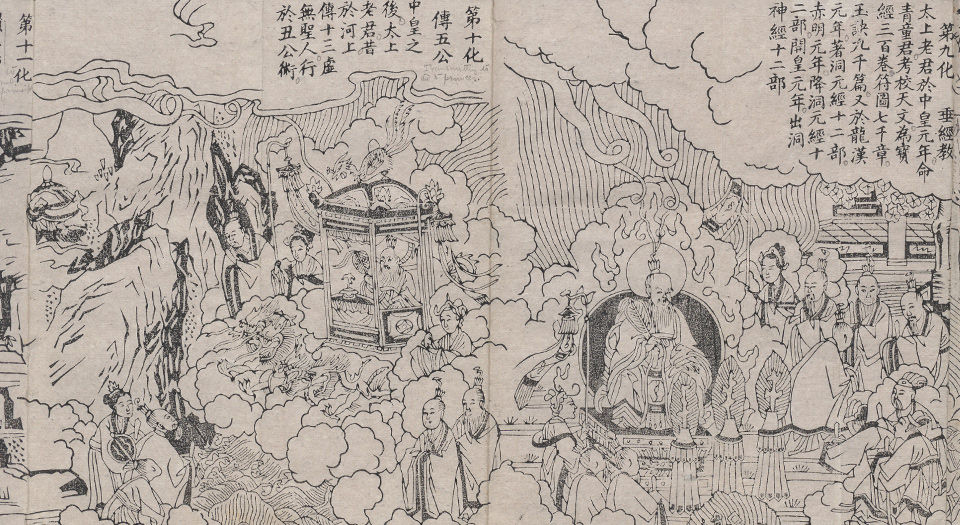 第九化 垂經教
太上老君於中皇元年命
青童君考校天文為寶
經三百卷符圖七千章
玉訣九千篇又於龍漢
元年著洞元經十二部
赤明元年降洞元經十
二部開皇元年出洞
神經十二部
第十化
傳五公
中皇之
後太上
老君昔
於河上
傳十三虛
無聖人行
於丑公術
第十一化